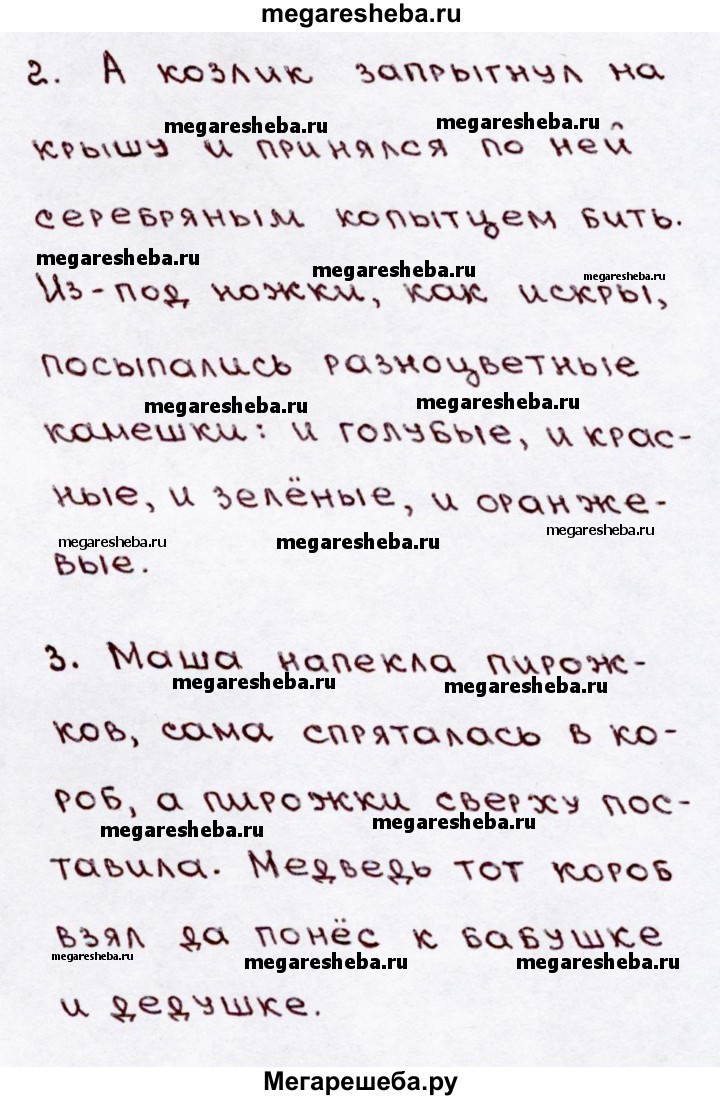 megaresheba.ru
2. А козлик запрыгнул на
megaresheba.ru megaresheba.ru
крышу и принялся по ней
серебряным копытцем бить.
megaresheba.ru megaresheba.ru megaresheba.ru
Из-под ножки, как искры,
посыпались разноцветные
megaresheba.ru megaresheba.ru
камешки: и голубые, и крас-
ные, и зелёные, и оранже-
megaresheba.ru megaresheba.ru megaresheba.ru
вые.
3. Маша напекла пирож-
megaresheba.ru megaresheba.ru
ков, сама спряталась в ко-
роб, а пирожки сверху пос-
megaresheba.ru megaresheba.ru
тавила. Медведь тот короб
взял да понёс к бабушке
megaresheba.ru megaresheba.ru megaresheba.ru
и дедушке.
Мегарешеба.ру